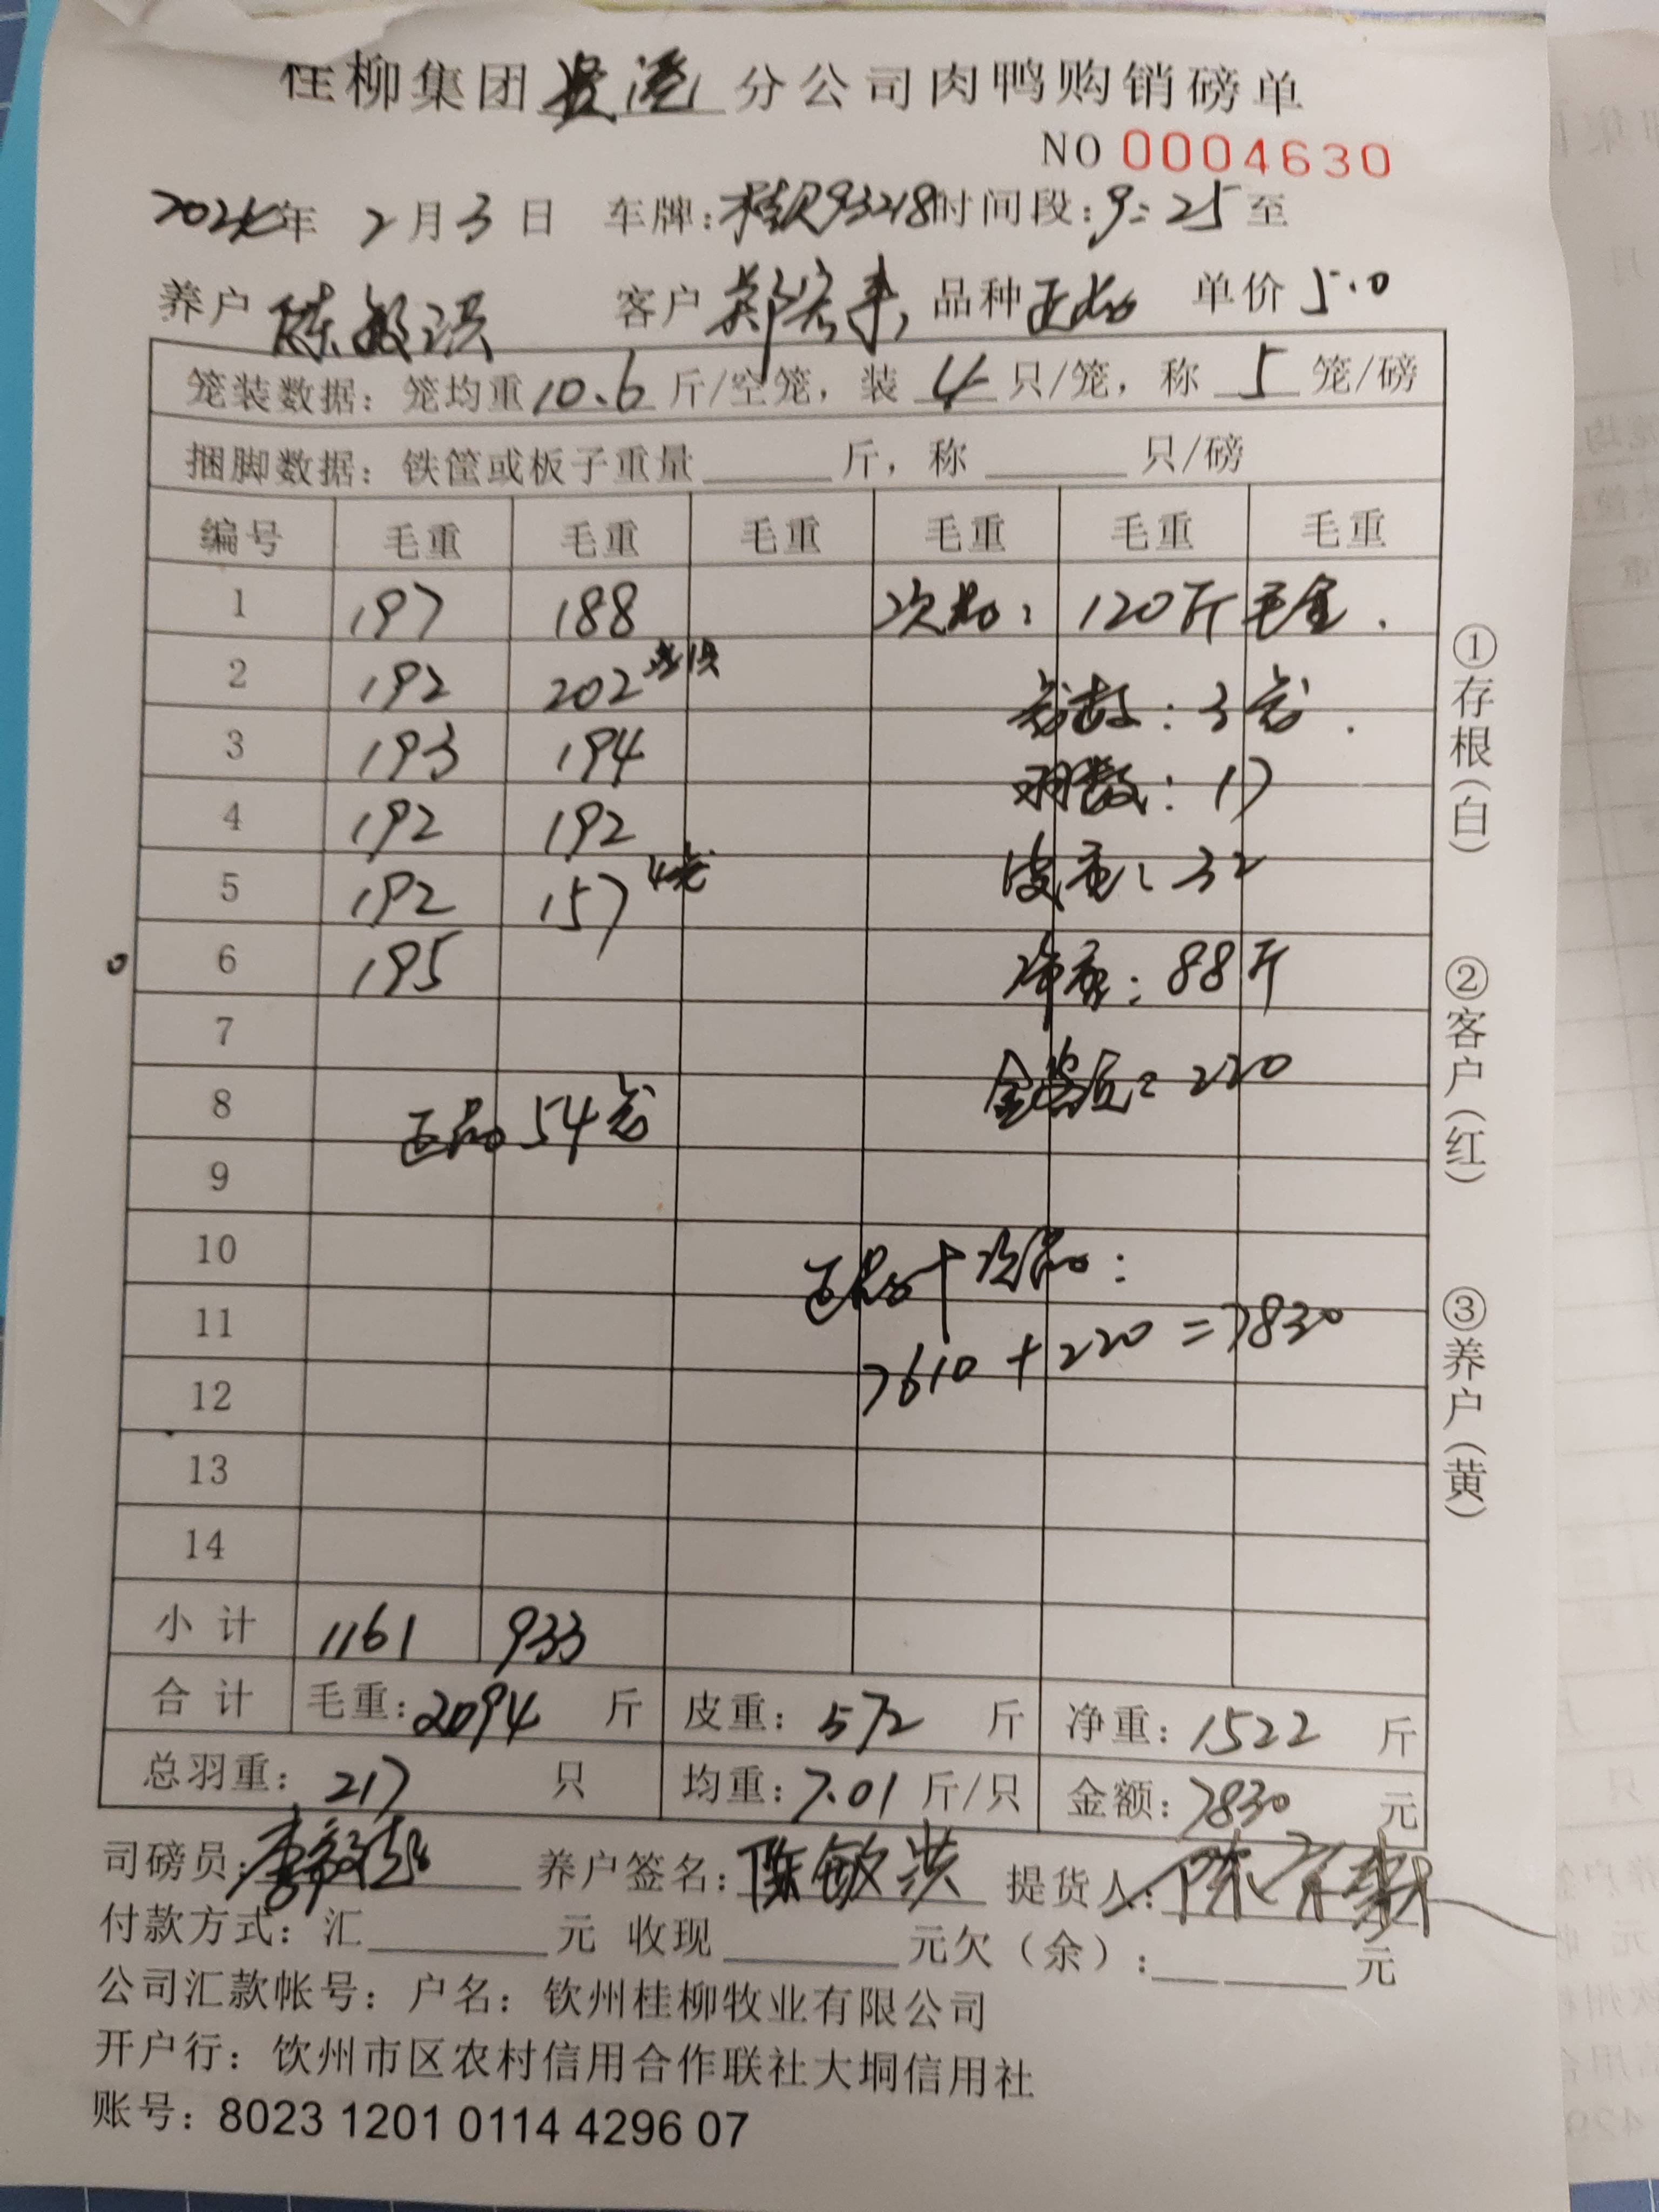 桂柳集团贵港分公司肉鸭购销磅单
NO 0004630
2024年 2月3日 车牌:桂R93218时间段:9:25至
养户 陈敏洪 客户 郑宏 品种 正品 单价 5.0
笼装数据: 笼均重10.6斤/空笼, 装 4 只/笼, 称 5 笼/磅
捆脚数据: 铁筐或板子重量 斤, 称 只/磅
编号 毛重 毛重 毛重 毛重 毛重 毛重
1 197 188 次品: 120斤毛重.
2 192 202 笼数: 3笼.
3 193 194 羽数: 17
4 192 192
5 192 157 4笼 皮重: 32
6 195 净重: 88斤
7
8 正品 54笼 金额: 220
9
10 正品+次品:
11 7610+220=7830
12
13
14
小计 1161 933
合计 毛重:2094 斤 皮重: 572 斤 净重: 1522 斤
总羽重: 217 只 均重:7.01 斤/只 金额:7830 元
司磅员: 养户签名:陈敏洪 提货人:陈
付款方式: 汇 元 收现 元欠(余): 元
公司汇款帐号: 户名: 钦州桂柳牧业有限公司
开户行: 钦州市区农村信用合作联社大垌信用社
账号: 8023 1201 0114 4296 07
①存根(白)
②客户(红)
③养户(黄)